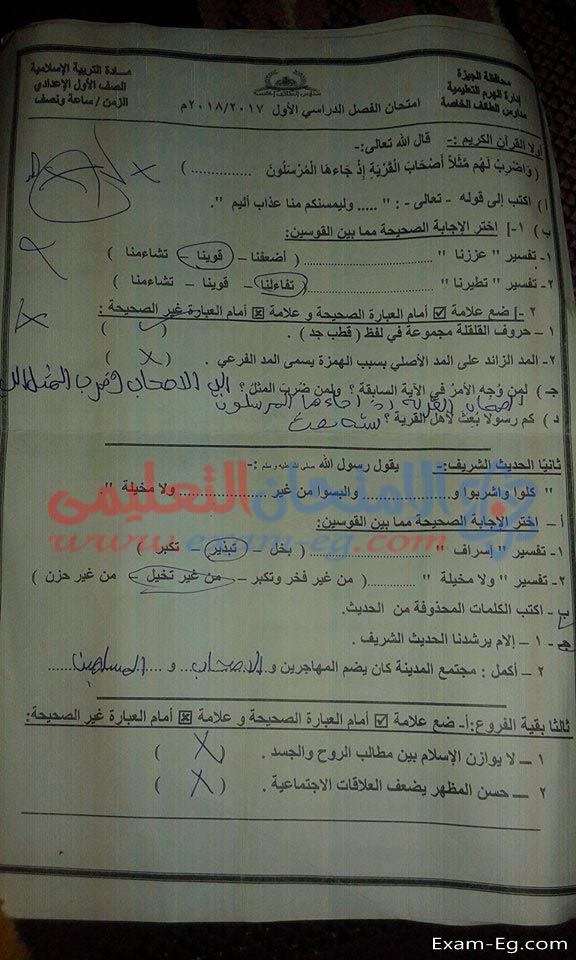 محافظة الجيزة
إدارة الهرم التعليمية
مدارس الطائف الخاصة
امتحان الفصل الدراسي الأول ٢٠١٨/٢٠١٧م
مادة التربية الإسلامية
الصف الأول الإعدادي
الزمن / ساعة ونصف
أولا القرآن الكريم :- قال الله تعالى:-
( وَاضْرِبْ لَهُم مَّثَلاً أَصْحَابَ الْقَرْيَةِ إِذْ جَاءهَا الْمُرْسَلُونَ .............. )
أ ) اكتب إلى قوله - تعالى - : " ..... وليمسنكم منا عذاب أليم ".
ب ) ١-] اختر الإجابة الصحيحة مما بين القوسين:
١- تفسير " عززنا " .................... ( أضعفنا – قوينا – تشاءمنا )
٢- تفسير " تطيرنا " .................... ( تفاءلنا – قوينا – تشاءمنا )
٢ -] ضع علامة ☑ أمام العبارة الصحيحة و علامة ☒ أمام العبارة غير الصحيحة :
١ – حروف القلقلة مجموعة في لفظ ( قطب جد ) . ( ✓ )
٢- المد الزائد على المد الأصلي بسبب الهمزة يسمى المد الفرعي . ( X )
جـ ) لمن وُجه الأمرُ في الآية السابقة ؟ ولمن ضرب المثل ؟ الي الاصحاب وضرب المثل
اصحاب القرية اذ جاءها المرسلون
د ) كم رسولاً بُعث لأهل القرية ؟
ثانيًا الحديث الشريف:- يقول رسول الله صلى الله عليه و سلم :-
" كلوا واشربوا و.................. والبسوا من غير .................. ولا مخيلة "
أ – اختر الإجابة الصحيحة مما بين القوسين:
١- تفسير " إسراف " .................. ( بخل – تبذير – تكبر )
٢- تفسير " ولا مخيلة " ..........( من غير فخر وتكبر – من غير تخيل – من غير حزن )
ب - اكتب الكلمات المحذوفة من الحديث.
جـ – ١ – إلام يرشدنا الحديث الشريف .
٢ – أكمل : مجتمع المدينة كان يضم المهاجرين و الاصحاب و المسلمين
ثالثا بقية الفروع: أ- ضع علامة ☑ أمام العبارة الصحيحة و علامة ☒ أمام العبارة غير الصحيحة:
١ – لا يوازن الإسلام بين مطالب الروح والجسد . ( X )
٢ – حسن المظهر يضعف العلاقات الاجتماعية . ( X )
الامتحان التعليمى
www.exam-eg.com
Exam-Eg.com